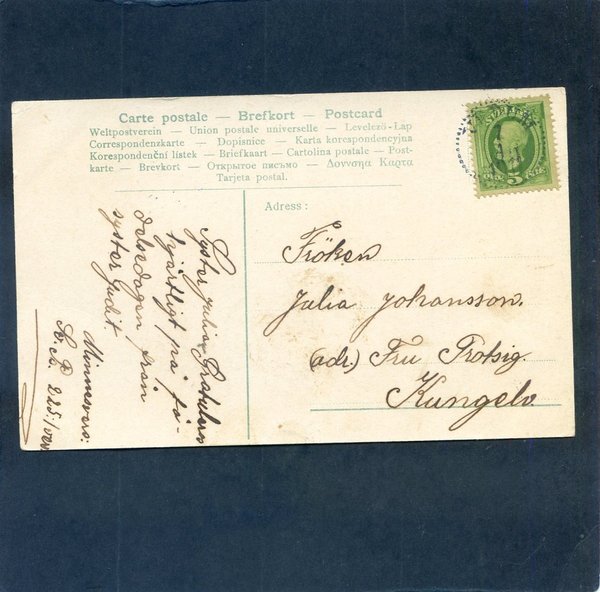 Carte postale — Brefkort — Postcard
Weltpostverein — Union postale universelle — Levelező-Lap
Correspondenzkarte — Dopisnice — Karta korespondencyjna
Korespondenční lístek — Briefkaart — Cartolina postale — Post-
karte — Brevkort — Открытое письмо — Δοννσηα Καρτα
Tarjeta postal.
Adress:
Fröken
Julia Johansson.
(adr.) Fru Trotsig.
Kungelv
Syster Julia Gratuleras
hjärtligt på fö-
delsedagen från
syster Judit
Minneros.
5 ÖRE